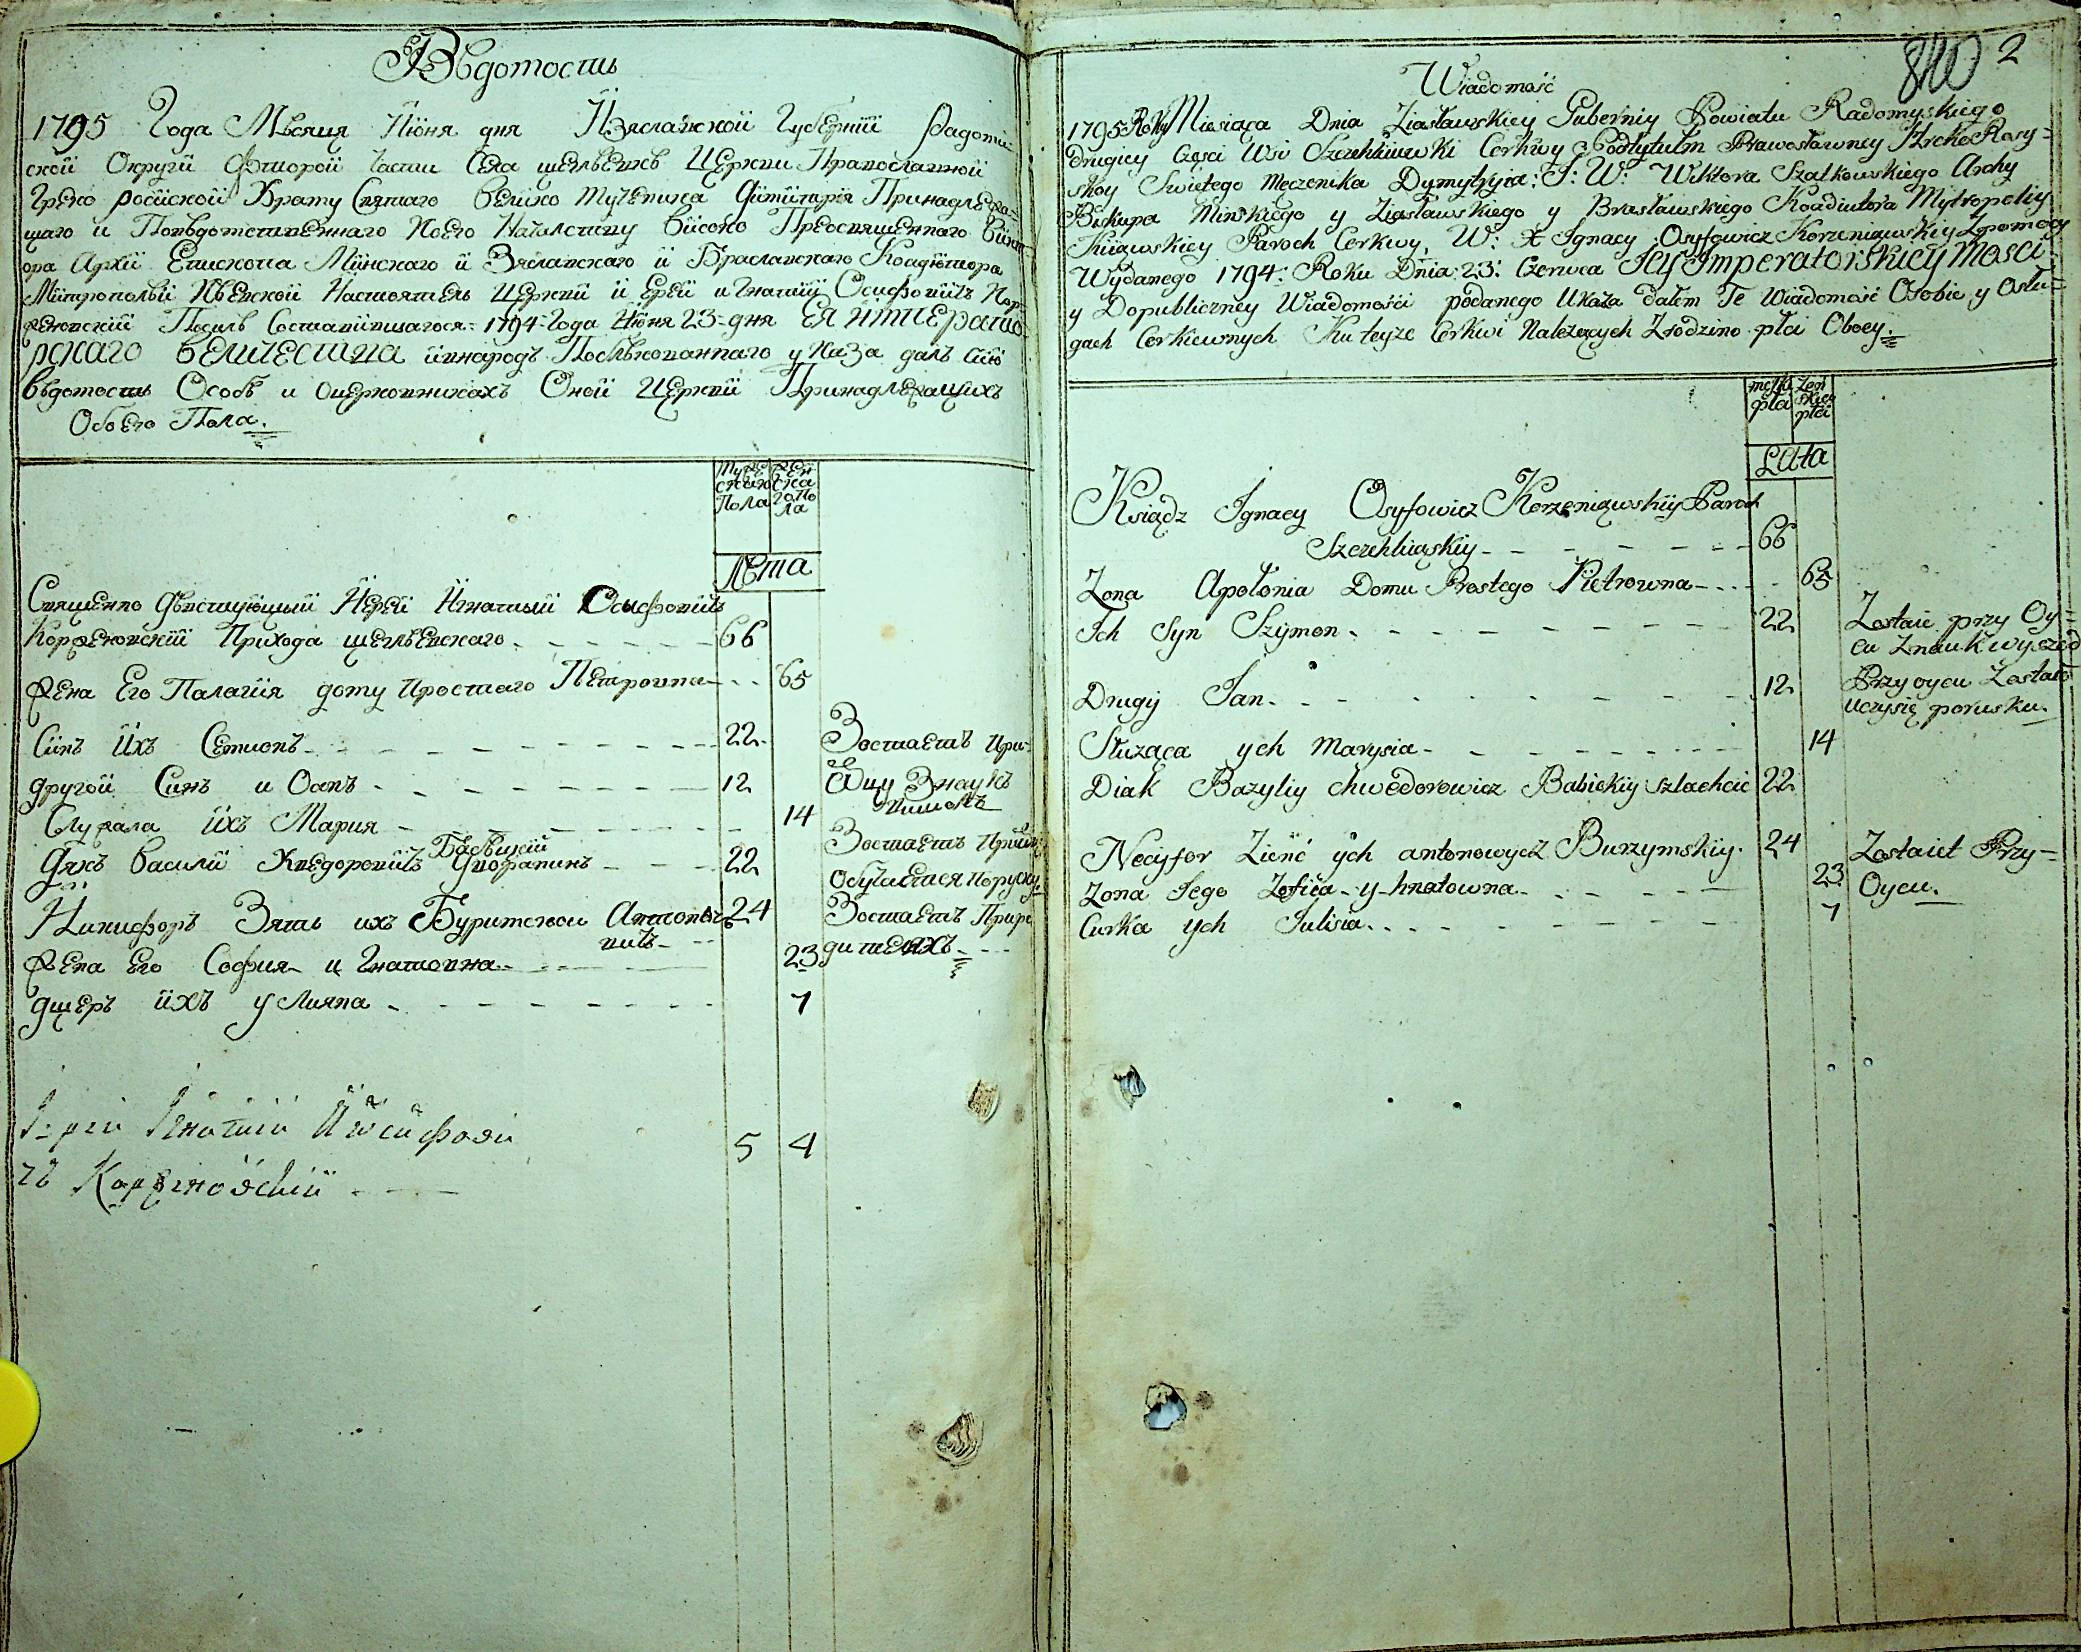 Вѣдомость
1795 Года Мѣсяця Июня дня Изяславской Губернїи Радоми-
ской Округи Фторой Части Села щегльевъ Церкви Православной
Греко росїйской Храму Святаго велико мученика Димитрїя Принадлежа-
щаго и Повѣдомственнаго Коего Началству високо Преосвященнаго Викт-
ора Архїи Епископа Минскаго и Зяславскаго и Браславскаго Коадютора
Митрополїи Кїевской Настоятель Церкви їерей Игнатїй Осифовичъ Кор-
женовскїй Посилѣ Составившагося 1794 Года Июня 23 дня ЕЯ ИМПЕРАТО-
РСКАГО ВЕЛИЧЕСТВА и внародъ Послѣкованнаго указа далъ сию
вѣдомость Особѣ и оцерковникахъ Оной Церкви Принадлежащихъ
Обоего Пола.
Муже Жен
скаго ска
Пола го По
ла
Лѣта
Священно Дѣйствующый Иерей Игнатый Осифовичъ
Корженовскїй Прихода щегльевскаго 66
жена Его Палагїя дому простаго Петровна 65
Синъ Ихъ Семионъ 22 Зостаетъ при
другой Синъ иОанъ 12 Отцу Знаукъ
Служала ихъ Мария 14
Бабицкїй
Дякъ василїй Хведоровичъ Дворанинъ 22 Обучаетася Поруску
Никифоръ Зять ихъ Буримской Антоно- 24 Зостаетъ Приро
вичъ
жена Его София игнатовна 23 дителяхъ
дщеръ ихъ уЛияна 7
Їерей Їгнатїй Йосифови
чъ Корженовскїй
5 4
840 2
Wiadomość
1795 Roku Miesiąca Dnia Ziasławskiey Guberniy Powiatu Radomyskiego
drugiey Częsci Wsi Szczehliiewki Cerkwy Podtytułm Prawosławney Hreko Rosy-
skoy Swiętego Męczenika Dymytryia: J: W: Wiktora Szatkowskiego Archy
Biskupa Minskiego y Ziasławskiego y Brasławskiego Koadiutora Mytropoliy
Kiiiowskiey Paroch Cerkwy, W: X Ignacy Osyfowicz Korzeniąwskiy Zpomocy
Wydanego 1794: Roku Dnia 23: Czerwca Jey Imperatorskiey Mosci
y Dopubliczney Wiadomości podanego Ukaza dałem Te Wiadomość Osobie y Osłu-
gach Cerkiewnych Ku teyze Cerkwi Nalezących Zrodzino płci Oboey.
męzka Zeń
płci skiey
płci
Lata
Ksiądz Ignacy Osyfowicz Korzeniąwskiy Paroch
Szczehliiąskiy 66
Zona Apołonia Domu Prostego Pietrowna 65
Ich Syn Szymon 22 Zostaie przy Oy-
cu Znauk wyszed
Drugij Jan 12 Przy oycu Zostaie
Uczysię porusku.
Słuząca ych Marysia 14
Diak Bazyliy Chwedorowicz Babickiy szlachcic 22
Necyfor Zieńć ych antonowycz Burzymskiy 24 Zostaiet Przy-
Zona Jego Zofiea y hnatowna 23 Oycu.
Curka ych Julisia 7